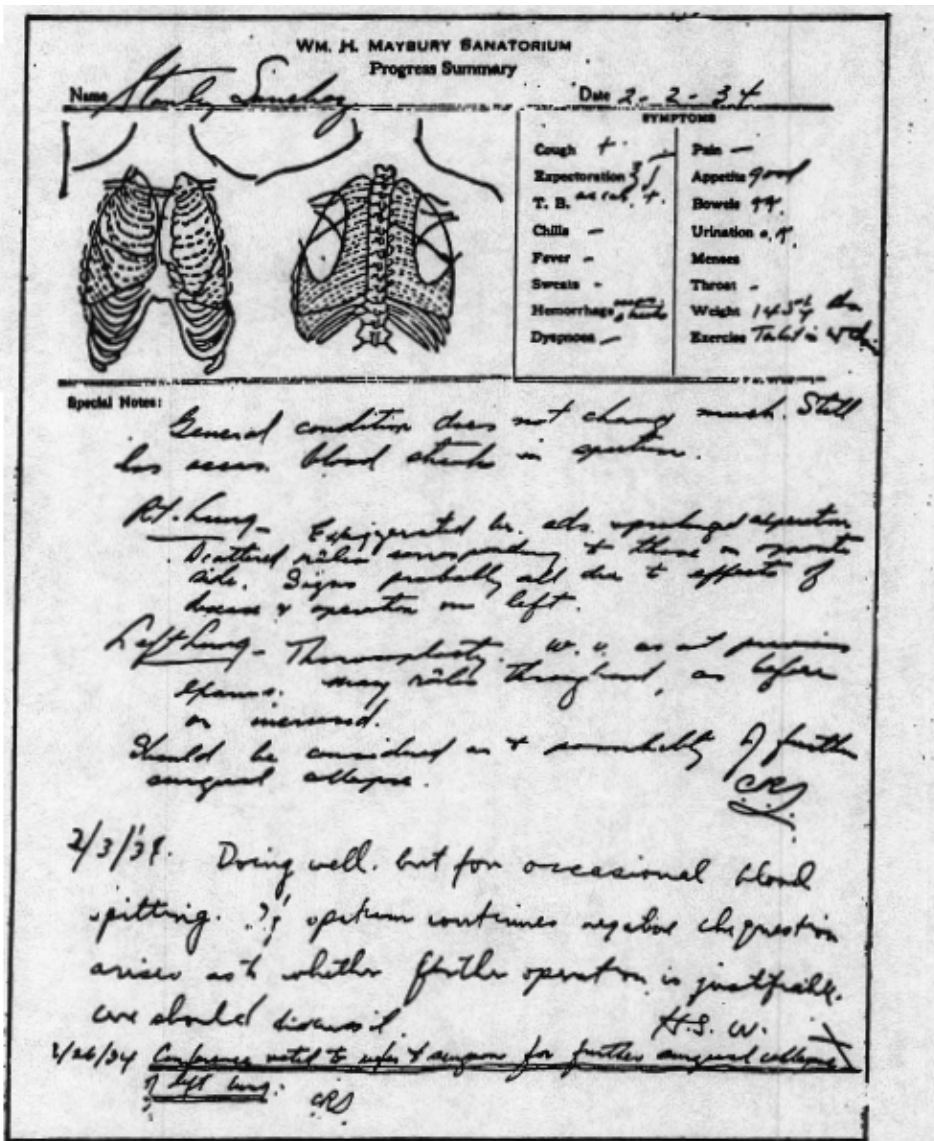 WM. H. MAYBURY SANATORIUM
Progress Summary
Name Stanley Date 2-2-34
SYMPTOMS
Cough + Pain —
Expectoration 3 Appetite good
T. B. Bowels
Chills — Urination
Fever - Menses
Sweats - Throat -
Hemorrhage Weight
Dyspnoea — Exercise
Special Notes:
General condition does not change much. Still
has occas. blood streaks in sputum.
Rt. Lung - Exaggerated br. sds.
Scattered râles corresponding to those on opposite
side. Signs probably all due to effects of
disease & operation on left.
Left Lung - Thoracoplasty. as at previous
exams. Many râles throughout, as before
or increased.
Should be considered as to of further
surgical collapse.
CRS
2/3/34. Doing well. but for occasional blood
spitting. If sputum continues negative the question
arises as to whether further operation is justifiable.
Case should discuss it.
H.S.W.
2/26/34 Conference voted to refer to surgeon for further surgical collapse
of left lung.
CRS